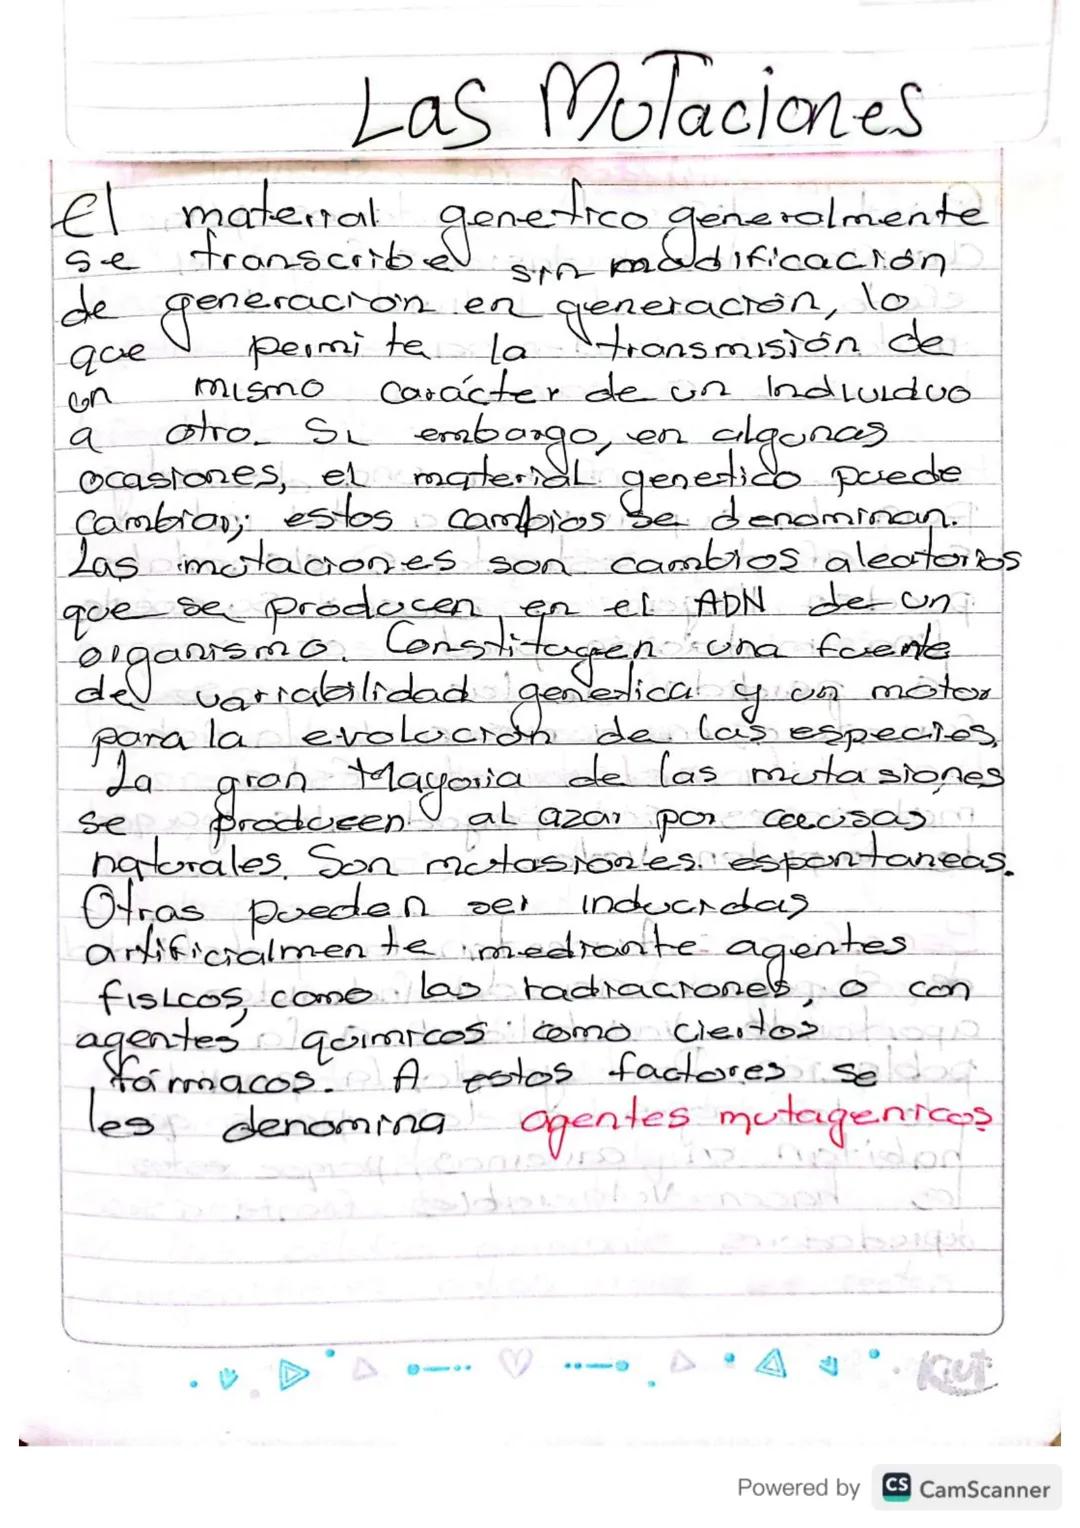 Las Mutaciones
El material genetico generalmente
se transcribe sin modificación
de generación en generación, lo
que permite la transmisión de
un mismo carácter de un Individuo
a otro. Si embargo, en algunas
ocasiones, el material genetico puede
cambiar; estos cambios se denominan.
Las mutaciones son cambios aleatorios
que se producen en el ADN de un
organismo. Constituyen una fuente
de variabilidad genetica y un motor
para la evolución de las especies,
La gran Mayoria de las mutasiones
se producen al azar por causas
naturales. Son mutasiones espontaneas.
Otras pueden ser inducidas
artificialmente mediante agentes
fisicos, como las radiaciones, o con
agentes quimicos como ciertos
fármacos. A estos factores se
les denomina agentes mutagenicos
Kiut
Powered by CS CamScanner